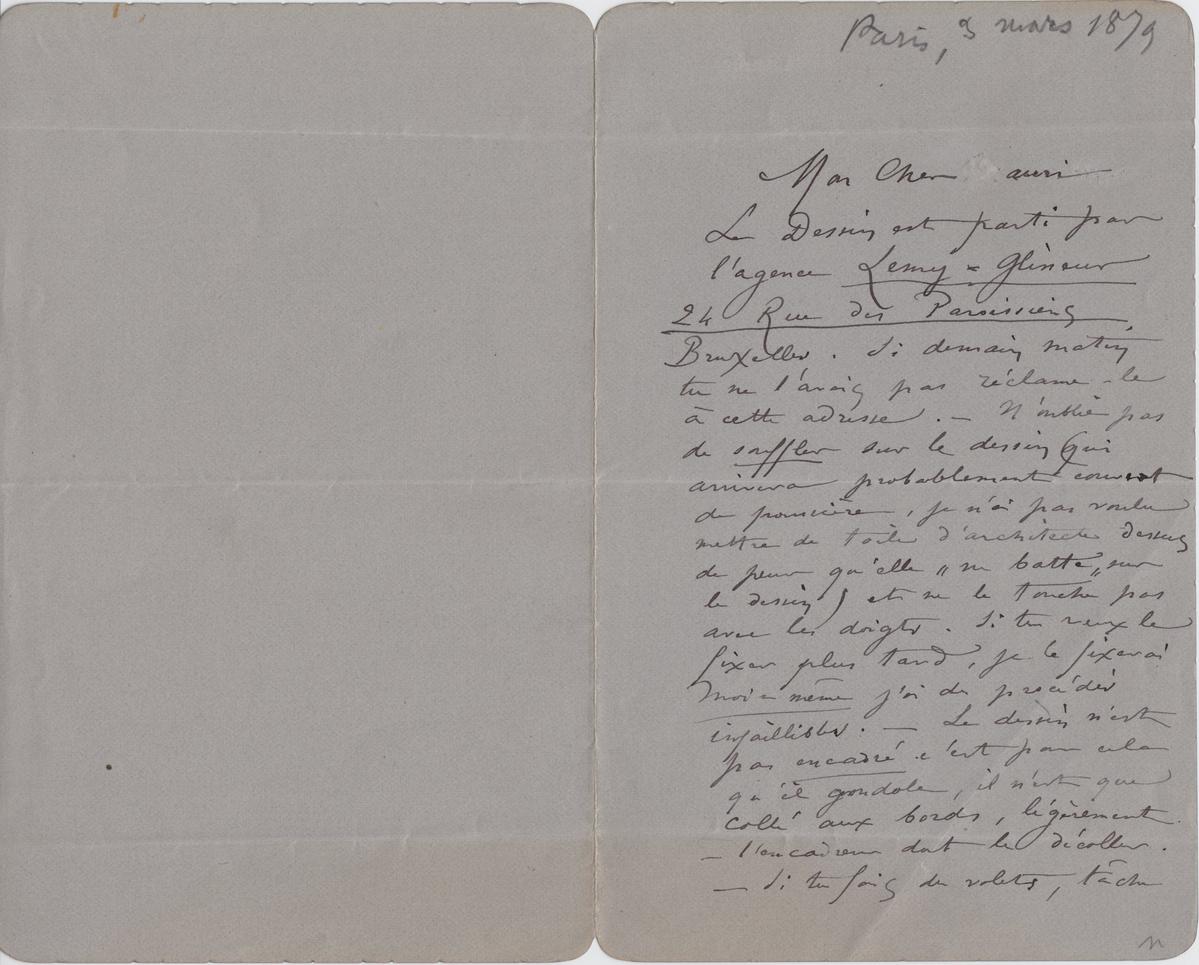 Paris, 3 mars 1879
Mon Cher ami
Le Dessin est parti par
l'agence
24 Rue des Paroissiens
Bruxelles. Si demain matin
tu ne l'avais pas réclame-le
à cette adresse. — N'oublie pas
de souffler sur le dessin (qui
arrivera probablement couvert
de poussière, je n'ai pas voulu
mettre de toile d'architecte dessus
de peur qu'elle „ ne batte „ sur
le dessin) et ne le touche pas
avec les doigts. Si tu veux le
fixer plus tard, je le fixerai
moi-même j'ai des procédés
infaillibles. — Le dessin n'est
pas encadré c'est pour cela
qu'il gondole, il n'est que
collé aux bords, légèrement.
— l'encadreur doit le décoller.
— Si tu fais des volets, tâche